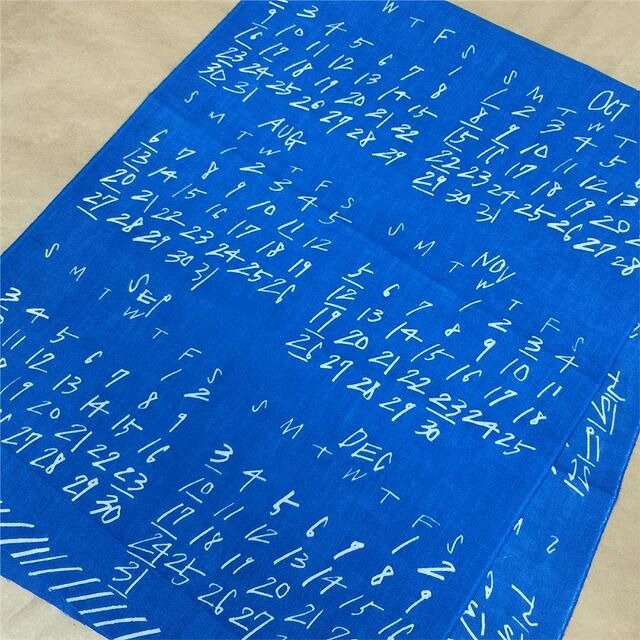 W T F S
1
3 4 5 6 7 8
9 10 11 12 13 14 15
16 17 18 19 20 21 22
23 24 25 26 27 28 29
30 31
AUG
S M T W T F S
1 2 3 4 5
6 7 8 9 10 11 12
13 14 15 16 17 18 19
20 21 22 23 24 25 26
27 28 29 30 31
SEP
S M T W T F S
1 2
3 4 5 6 7 8 9
11 12 13 14 15 16
19 20 21 22 23
27 28 29 30
OCT
S M T W T
1 2 3 4 5
8 9 10 11 12 13
15 16 17 18 19 20
22 23 24 25 26 27 28
29 30 31
NOV
S M T W T F S
1 2 3 4
5 6 7 8 9 10 11
12 13 14 15 16 17 18
19 20 21 22 23 24 25
26 27 28 29 30
DEC
S M T W T F S
1 2
3 4 5 6 7 8 9
10 11 12 13 14 15 16
17 18 19 20
24 25 26 27
31